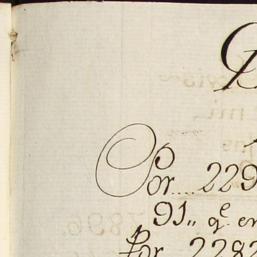 Por.... 229
91,, q.e en
Por 2282